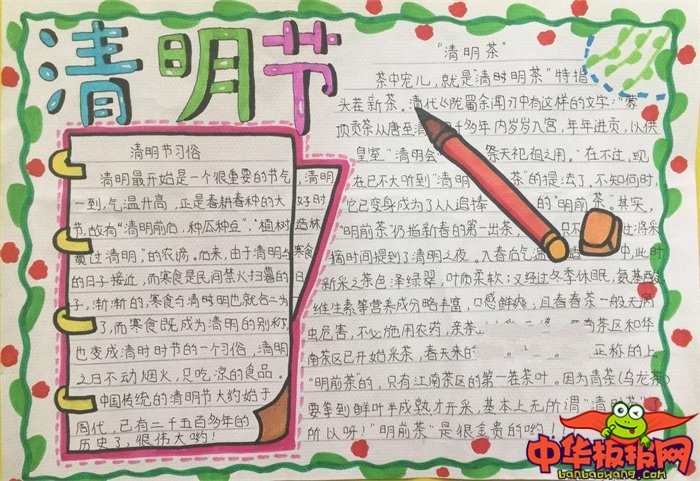 清明节
清明节习俗
清明最开始是一个很重要的节气,清明
一到,气温升高,正是春耕春种的大好时
节,故有"清明前后,种瓜种豆","植树造林
莫过清明"的农谚。后来,由于清明与寒食
的日子接近,而寒食是民间禁火扫墓的日
子,渐渐的,寒食与清时明也就合二为
了,而寒食既成为清明的别称,
也变成清时时节的一个习俗,清明
之日不动烟火,只吃凉的食品。
中国传统的清明节大约始于
周代,已有二千五百多年的
历史了,很伟大哟!
"清明茶"
茶中宠儿,就是"清时明茶"特指
头茬新茶。清代《陇蜀余闻》中有这样的文字:"
顶贡茶从唐至清 千多年内岁岁入宫,年年进贡,以供
皇室"清明会" 祭天祀祖之用。"在不过,现
在已不大听到"清明 茶"的提法了,不知何时,
它已变身成为了人人追捧 的"明前茶"。其实,
"明前茶"仍指新春的第一出茶, 只不 过将采
摘时间提到了清明之夜。入春后气温 中,此时
新采之茶色泽绿翠,叶质柔软;又经过冬季休眠,氨基酸
维生素等营养成分略丰富,只感鲜爽,且春香茶一般无病
虫危害,不必施用农药,亲茶 茶区和华
南茶区已开始采茶,春天来的 正称的上
"明前茶"的,只有江南茶区的第一茬茶叶。因为青茶(乌龙茶)
要拿到鲜叶半成熟才开采,基本上无所谓"清明茶"
所以呀!"明前茶"是很金贵的哟!
中华板报网
banbaowang.com